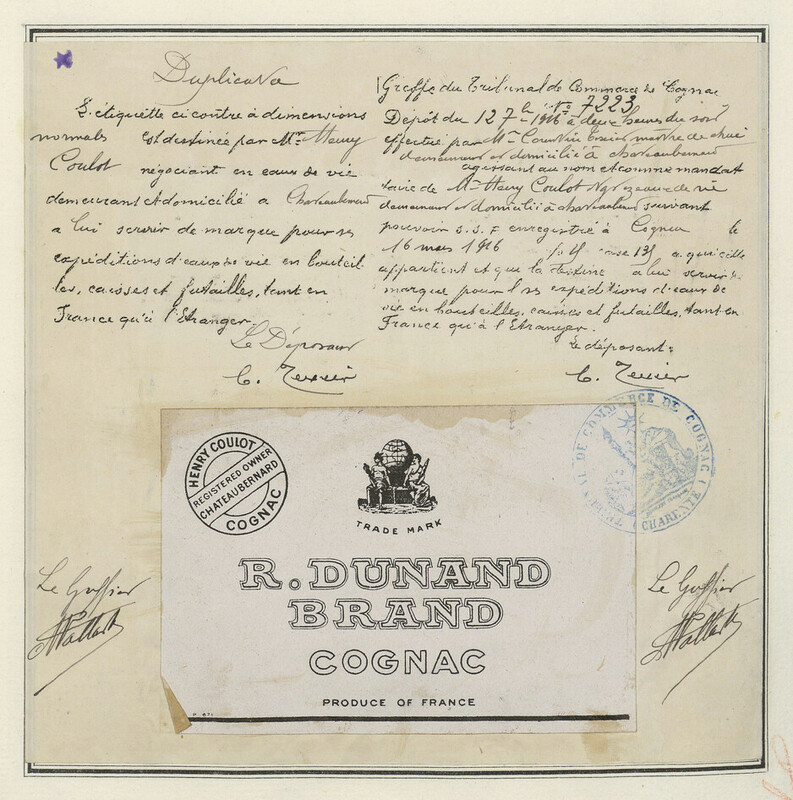 Duplicata
L'étiquette ci contre à dimensions
normales est destinée par Mr Henry
Coulot négociant en eaux de vie
demeurant et domicilié à Chateaubernard
a lui servir de marque pour ses
expéditions d'eaux de vie en bouteil
les, caisses et futailles, tant en
France qu'à l'Etranger.
Le Déposant
C. Texier
Greffe du Tribunal de Commerce de Cognac
No 7223
Dépôt du 12 7bre 1916 à deux heures du soir
effectué par Mr Texier maître de chai
demeurant et domicilié à chateaubernard
agissant au nom et comme mandat
taire de Mr Henry Coulot Ngt eaux de vie
demeurant et domicilié à chateaubernard suivant
pouvoir s.s.p enregistré à Cognac le
16 mars 1916 case 131 a qui elle
appartient et que la destine à lui servir de
marque pour ses expéditions d'eaux de
vie en bouteilles, caisses et futailles, tant en
France qu'à l'Etranger.
Le déposant:
C. Texier
HENRY COULOT
REGISTERED OWNER
CHATEAUBERNARD
COGNAC
TRADE MARK
R. DUNAND
BRAND
COGNAC
PRODUCE OF FRANCE
TRIBUNAL DE COMMERCE DE COGNAC (CHARENTE)
Le Greffier
Le Greffier